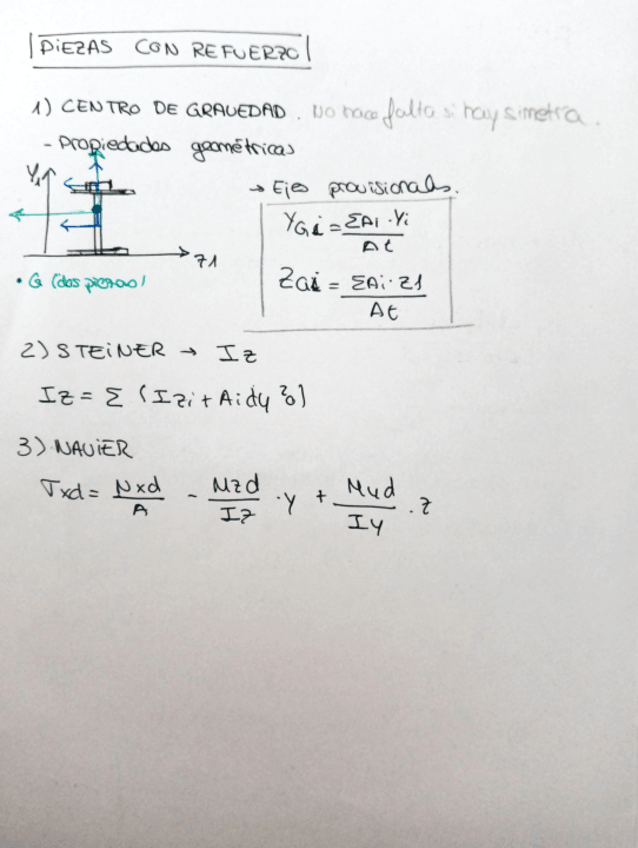 PIEZAS CON REFUERZO
1) CENTRO DE GRAVEDAD. No hace falta si hay simetra.
- Propiedades geométricas
Y1
→ Ejes provisionals.
YGi = ΣAi · Yi / At
z1
• G (dos piezas)
ZGi = ΣAi · z1 / At
2) STEINER → Iz
Iz = Σ (Izi + Ai dy²)
3) NAVIER
σxd = Nxd / A - Mzd / Iz · y + Myd / Iy · z